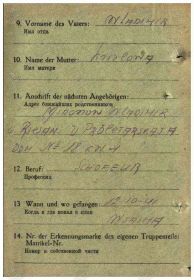 9. Vorname des Vaters: WLADIMIR
Имя отца
10. Name der Mutter:
Имя матери
11. Anschrift der nächsten Angehörigen:
Адрес ближайших родственников
WLADIMIR
DOM № 18 KW 1
12. Beruf: CHOFEUR
Профессия
13. Wann und wo gefangen:
Когда и где попал в плен
14. Nr. der Erkennungsmarke des eigenen Truppenteils:
Matrikel-Nr.
Номер в собственной части